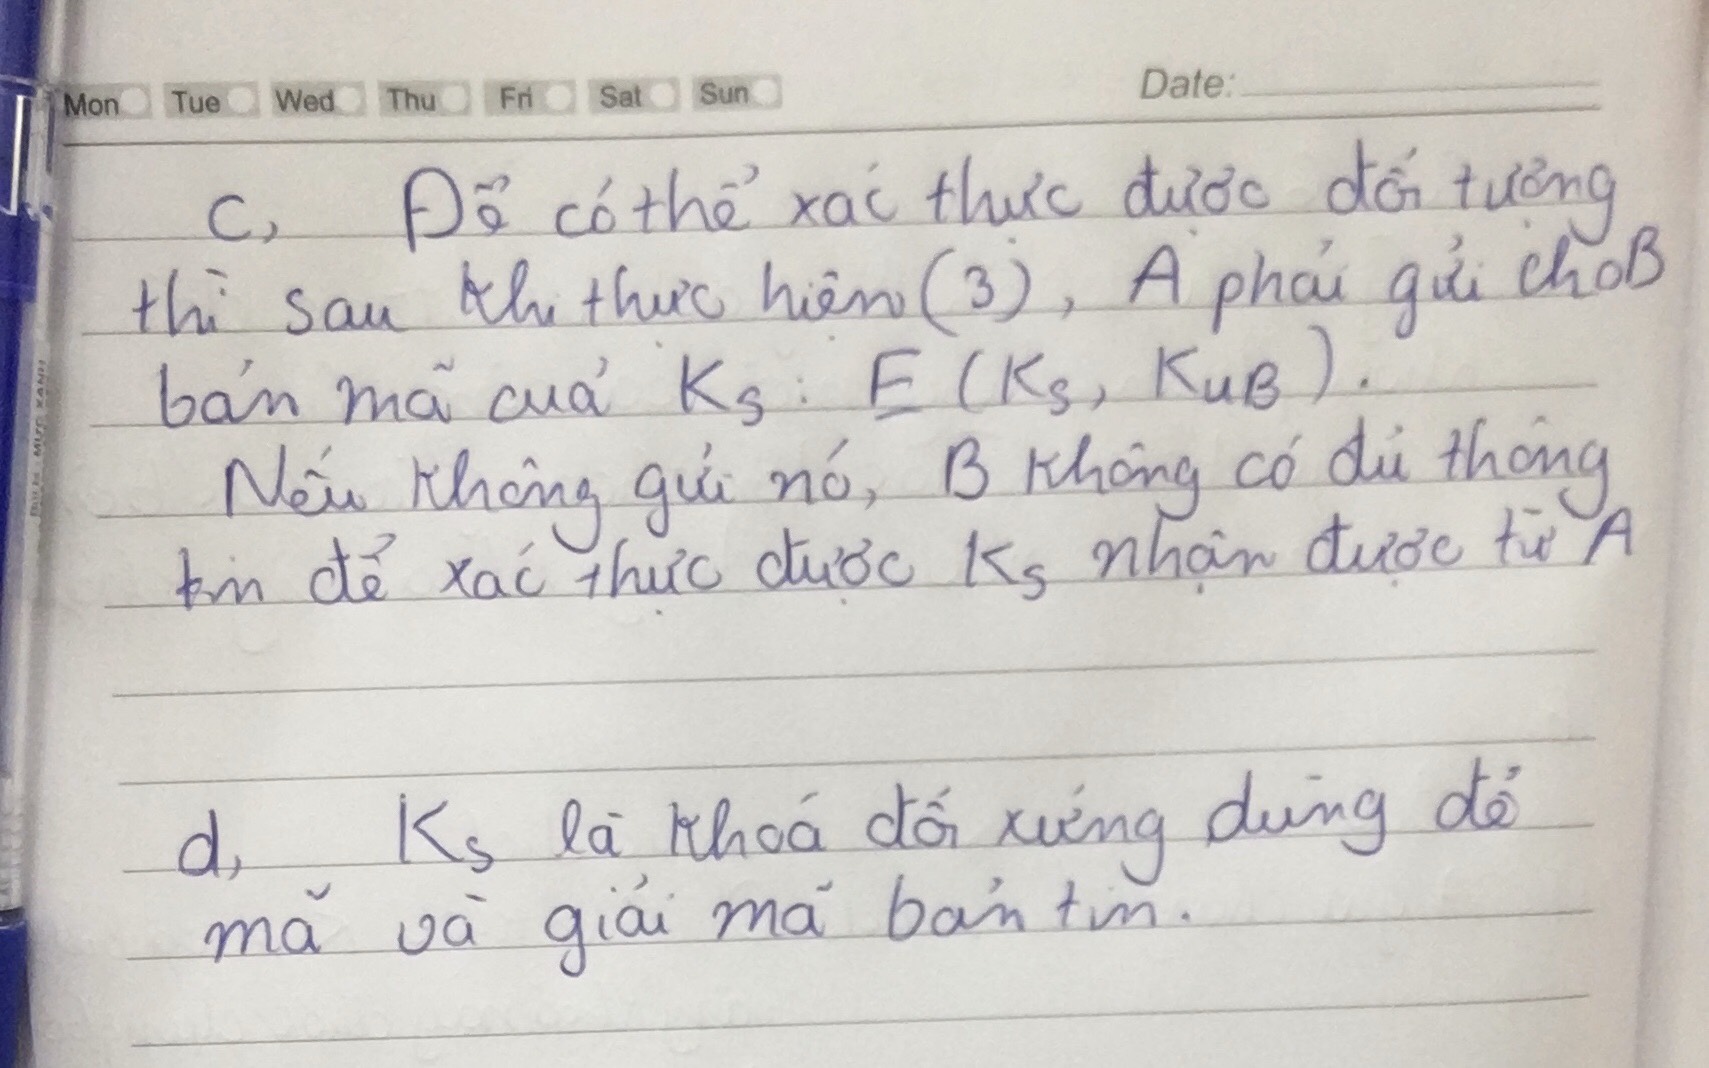 Mon Tue Wed Thu Fri Sat Sun Date:
c, Để có thể xác thực được đối tượng
thì sau khi thực hiện (3), A phải gửi cho B
bản mã của Ks : E (Ks, KUB).
Nếu không gửi nó, B không có đủ thông
tin để xác thực được Ks nhận được từ A
d, Ks là khoá đối xứng dùng để
mã và giải mã bản tin.